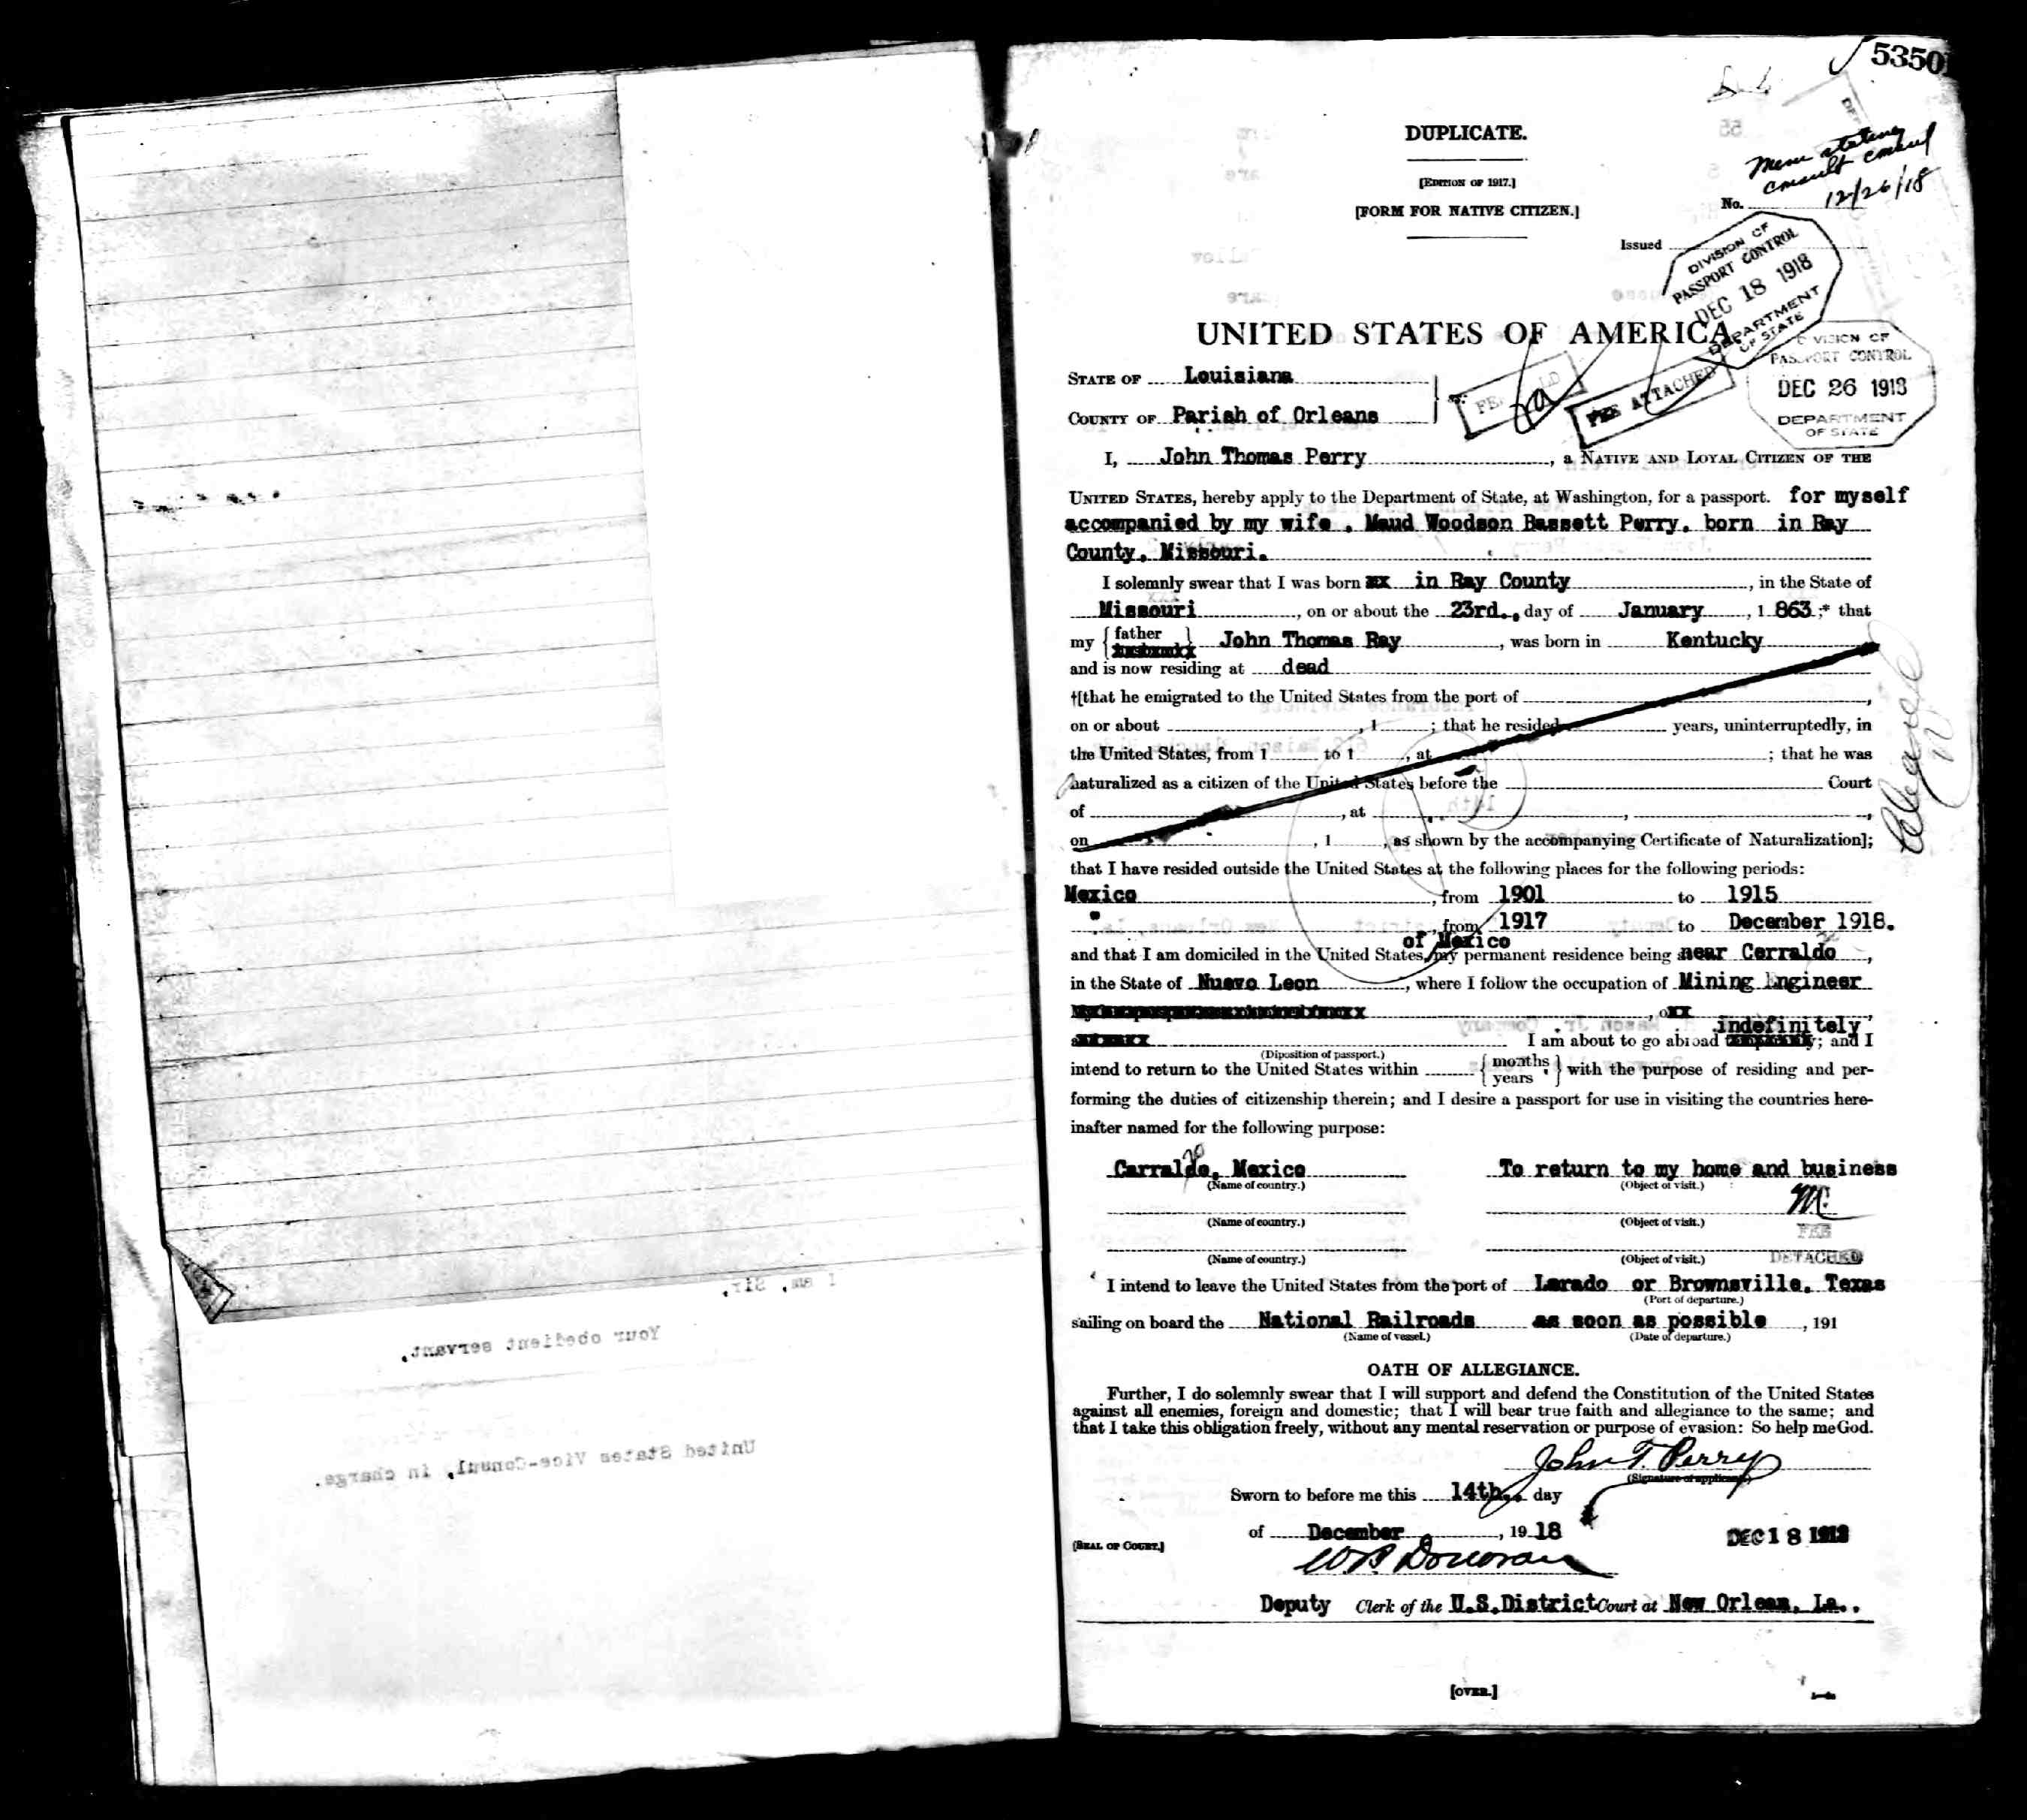 I am, Sir,
Your obedient servant,
United States Vice-Consul, in charge.
5350
DUPLICATE.
[EDITION OF 1917.]
[FORM FOR NATIVE CITIZEN.]
Mem stating
consult consul
No. 12/26/18
Issued
DIVISION OF
PASSPORT CONTROL
DEC 18 1918
DEPARTMENT
OF STATE
UNITED STATES OF AMERICA.
DIVISION OF
PASSPORT CONTROL
DEC 26 1918
DEPARTMENT
OF STATE
FEE ATTACHED
STATE OF Louisiana
COUNTY OF Parish of Orleans
ss:
I, John Thomas Perry, a NATIVE AND LOYAL CITIZEN OF THE
UNITED STATES, hereby apply to the Department of State, at Washington, for a passport. for myself
accompanied by my wife . Maud Woodson Bassett Perry. born in Ray
County. Missouri.
I solemnly swear that I was born xx in Ray County, in the State of
Missouri, on or about the 23rd., day of January, 1 863 ;* that
my { father } John Thomas Ray, was born in Kentucky
and is now residing at dead
†[that he emigrated to the United States from the port of ,
on or about , 1 ; that he resided years, uninterruptedly, in
the United States, from 1 to 1 , at ; that he was
naturalized as a citizen of the United States before the Court
of , at , ,
on , 1 , as shown by the accompanying Certificate of Naturalization];
Cleared
that I have resided outside the United States at the following places for the following periods:
Mexico, from 1901 to 1915
" , from 1917 to December 1918.
of Mexico
and that I am domiciled in the United States, my permanent residence being near Cerraldo,
in the State of Nuevo Leon, where I follow the occupation of Mining Engineer
, oxx ,
indefinitely
I am about to go abroad ; and I
(Diposition of passport.)
intend to return to the United States within { months years } with the purpose of residing and per-
forming the duties of citizenship therein; and I desire a passport for use in visiting the countries here-
inafter named for the following purpose:
Carraldo, Mexico To return to my home and business
(Name of country.) (Object of visit.)
M.
(Name of country.) (Object of visit.)
FEE
DETACHED
(Name of country.) (Object of visit.)
I intend to leave the United States from the port of Larado or Brownsville. Texas
(Port of departure.)
sailing on board the National Railroads as soon as possible, 191
(Name of vessel.) (Date of departure.)
OATH OF ALLEGIANCE.
Further, I do solemnly swear that I will support and defend the Constitution of the United States
against all enemies, foreign and domestic; that I will bear true faith and allegiance to the same; and
that I take this obligation freely, without any mental reservation or purpose of evasion: So help me God.
John T. Perry
(Signature of applicant.)
Sworn to before me this 14th., day
of December, 19 18
[SEAL OF COURT.]
DEC 18 1918
W B Donovan
Deputy Clerk of the U.S.District Court at New Orlean. La..
[OVER.]